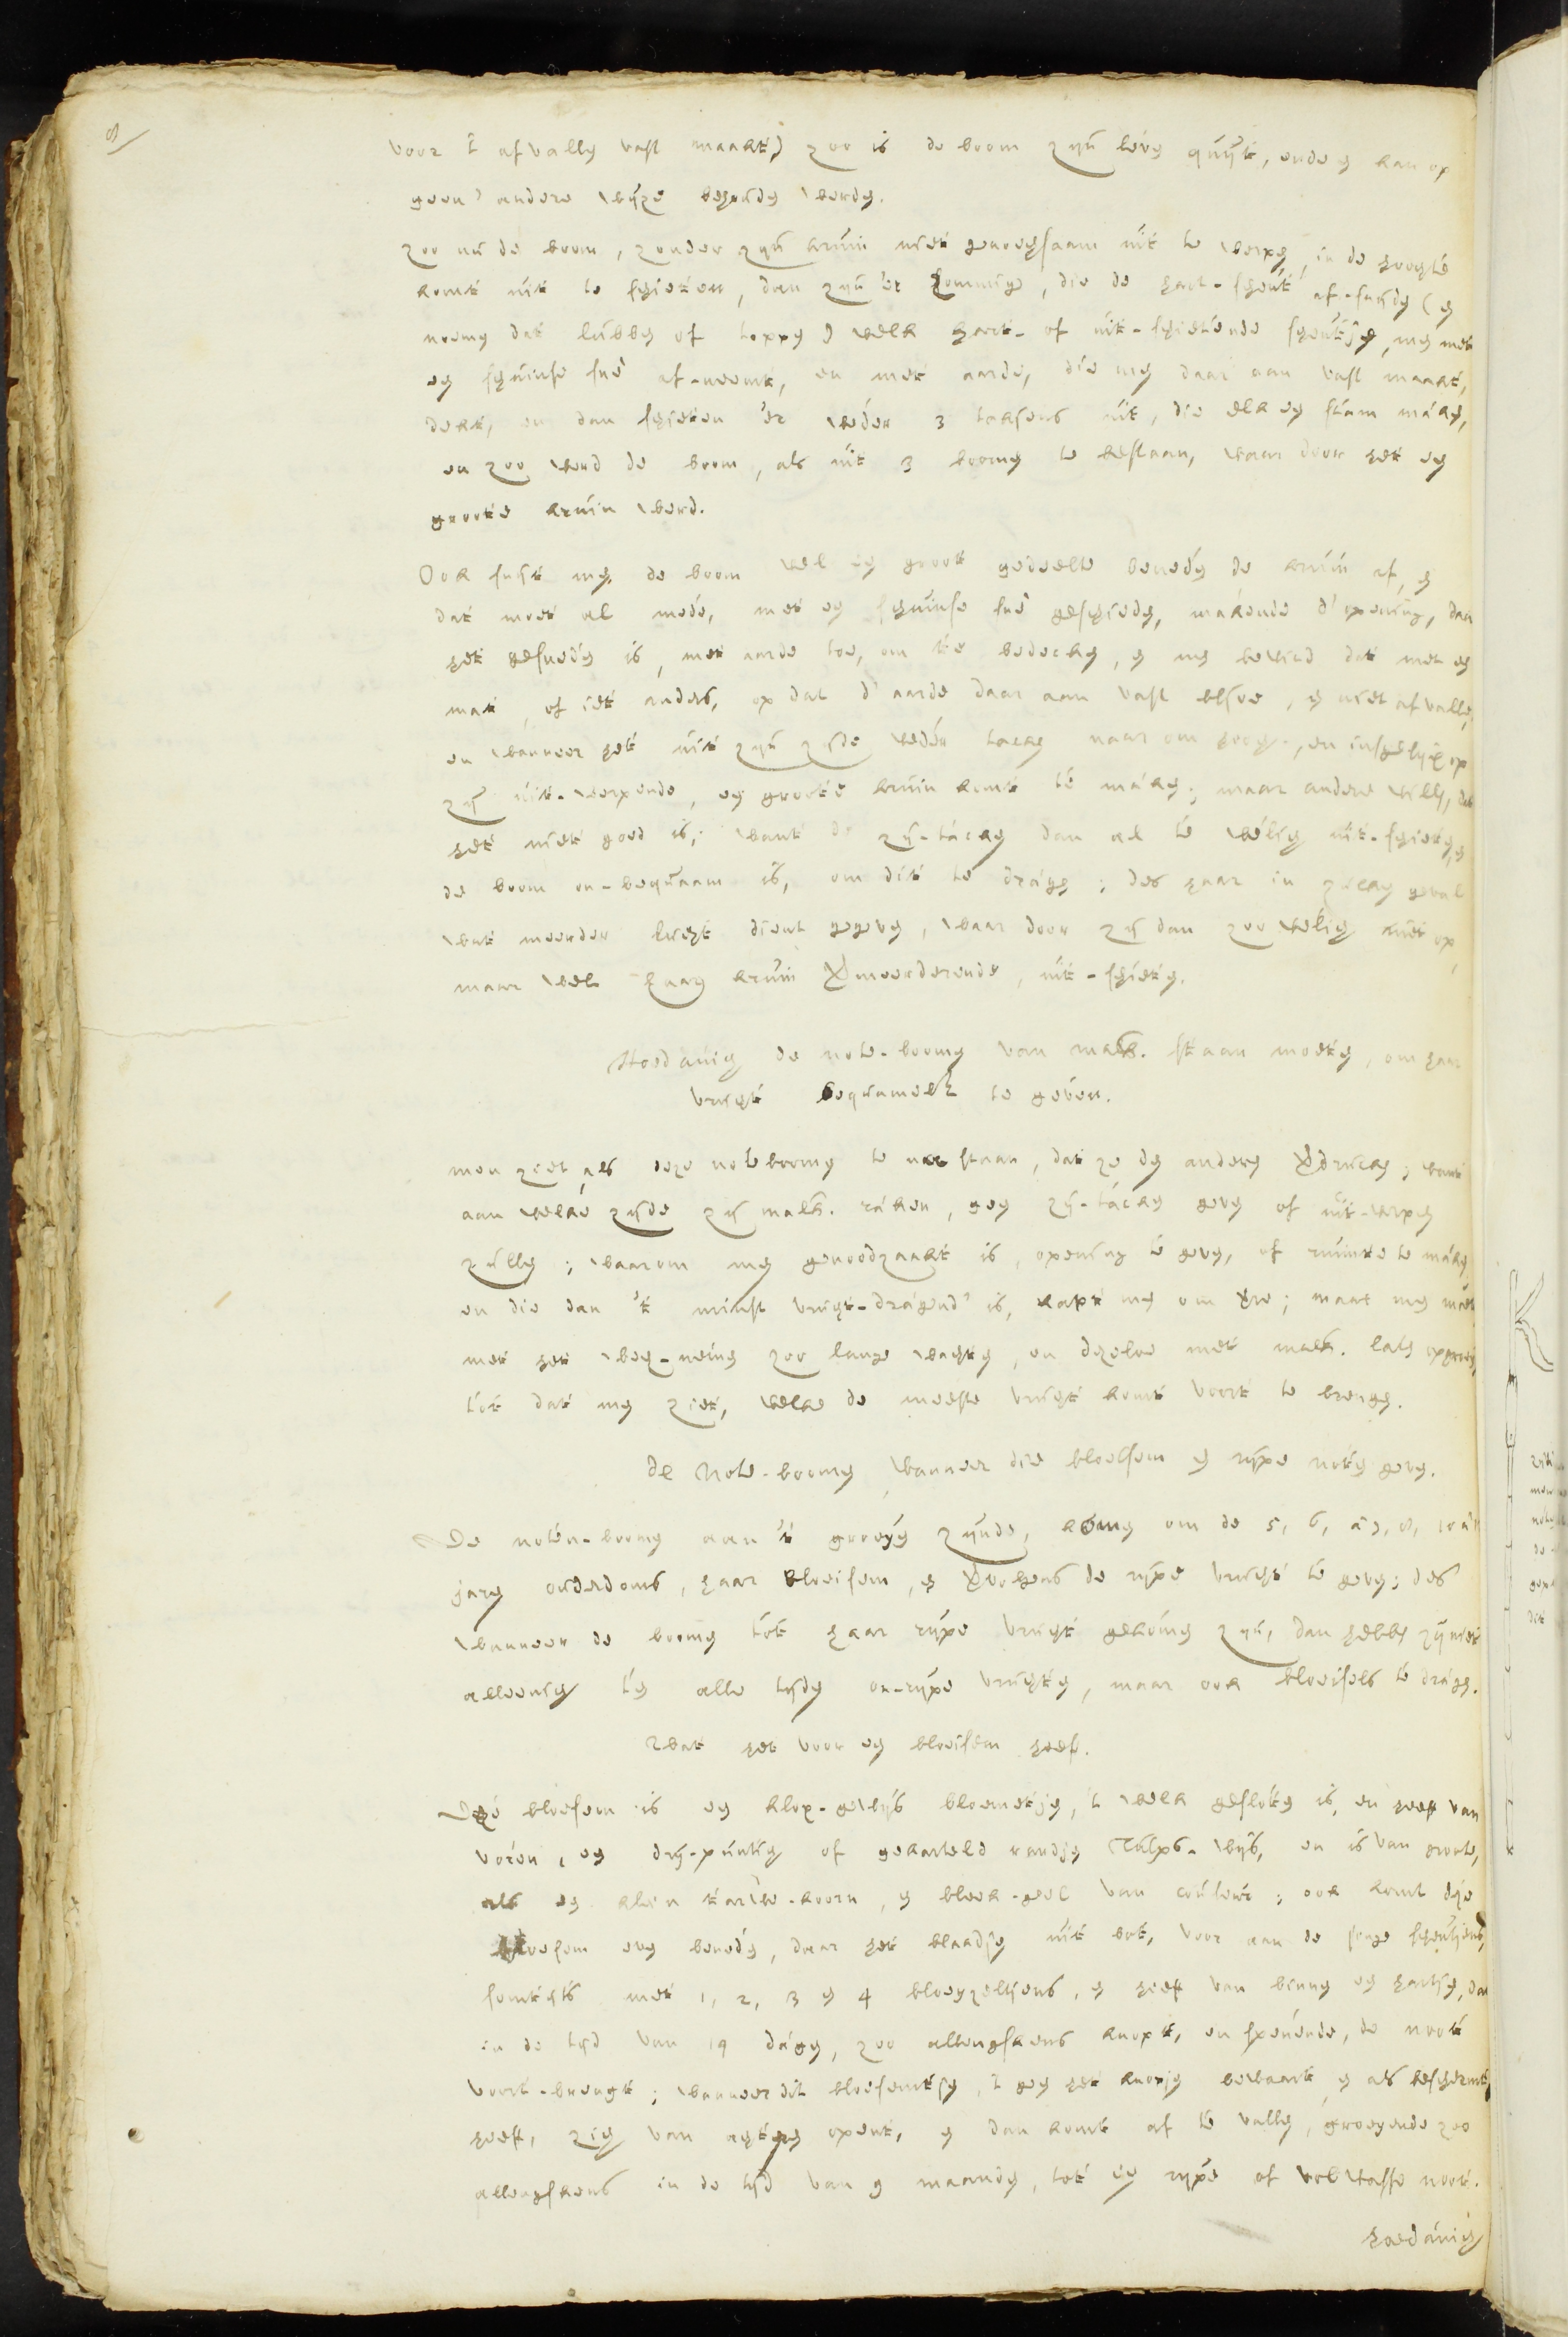 8/
voor 't afvallen vast maakt) zoo is de boom zijn leven quijt, ende en kan op
geen' andere wijze behouden werden.
zoo nu de boom, zonder zijn kruin niet genoegsaam uit te werpen, in de hoogte
komt uit te schieten, dan zijn 'er sommige, die de hart-scheut af-snijden (en
noemen dat lubben of toppen) welk hart- of uit-schietende scheutjen, men met
een schuinse sne af-neemt, en met aarde, die men daar aan vast maakt,
dekt, en dan schieten 'er weder 3 taksens uit, die elk een stam maken,
en zoo werd de boom, als uit 3 boomen te bestaan, waar door het een
groote kruin werd.
Ook snijt men de boom wel een groot gedeelte beneden de kruin af, en
dat moet al mede, met een schuinse sne geschieden, makende d'opening, daar
het gesneden is, met aarde toe, om te bedecken, en men bewind dat met een
mat, of iet anders, op dat d'aarde daar aan vast blijve, en niet afvalle,
en wanneer het uit zijn zijde weder tacken naar om hoog, en insgelijx op
zij uit-werpende, een groote kruin komt te maken; maar andere willen, dat
het niet goed is; want de zij-tacken dan al te welig uit-schieten, en
de boom on-bequaam is, om dit te dragen; des haar in zulken geval
wat meerder lucht dient gegeven, waar door zij dan zoo welig niet op,
maar wel haar kruin vermeerderende, uit-schieten.
Hoedanig de note-boomen van malk. staan moeten, om haar
vrucht bequamelk te geven.
men ziet als deze noteboomen te na staan, dat ze den anderen verdrucken; want
aan welke zijde zij malk. raken, geen zij-tacken geven of uit-werpen
zullen; waarom men genoodzaakt is, opening te geven, of ruimte te maken
en die dan 't minst vrucht-dragend' is, kapt men om verre; maar men moet
met het weg-nemen zoo lange wachten, en dezelve met malk. laten opgroejen,
tot dat men ziet, welke de meeste vrucht komt voort te brengen.
De Note-boomen, wanneer die bloeisem en rijpe noten geven.
De noten-boomen aan 't groeyen zijnde, komen om de 5, 6, à 7, 8, 10 à 11
jaren ouderdoms, haar bloeisem, en vervolgens de rijpe vrucht te geven; des
wanneer de boomen tot haar rijpe vrucht gekomen zijn, dan hebben zij niet
alleenig ten alle tijden on-rijpe vruchten, maar ook bloeisels te dragen.
Wat het voor een bloeisem heeft.
Deze bloesem is een klok-gewijs bloemetje, 't welk gesloten is, en heeft van
voren, een drij-puntig of gekarteld randje Tulps-wijs, en is van groote,
als een klein tarwe-koorn, en bleek-geel van couleur; ook komt dese
bloesem even beneden, daar het blaadje uit bot, voor aan de jonge scheutjens,
somtijts met 1, 2, 3 en 4 bloeyzeltjens, en heeft van binnen een hartje, dat
in de tijd van 19 dagen, zoo allengskens knopt, en openende, de noot
voort-brengt; wanneer dit bloesemtje, 't geen het knopje bewaart en als beschermt
heeft, zig van achteren opent, en dan komt af te vallen, groeyende zoo
allengskens in de tijd van 9 maanden, tot een rijpe of volwasse noot.
hoedanig